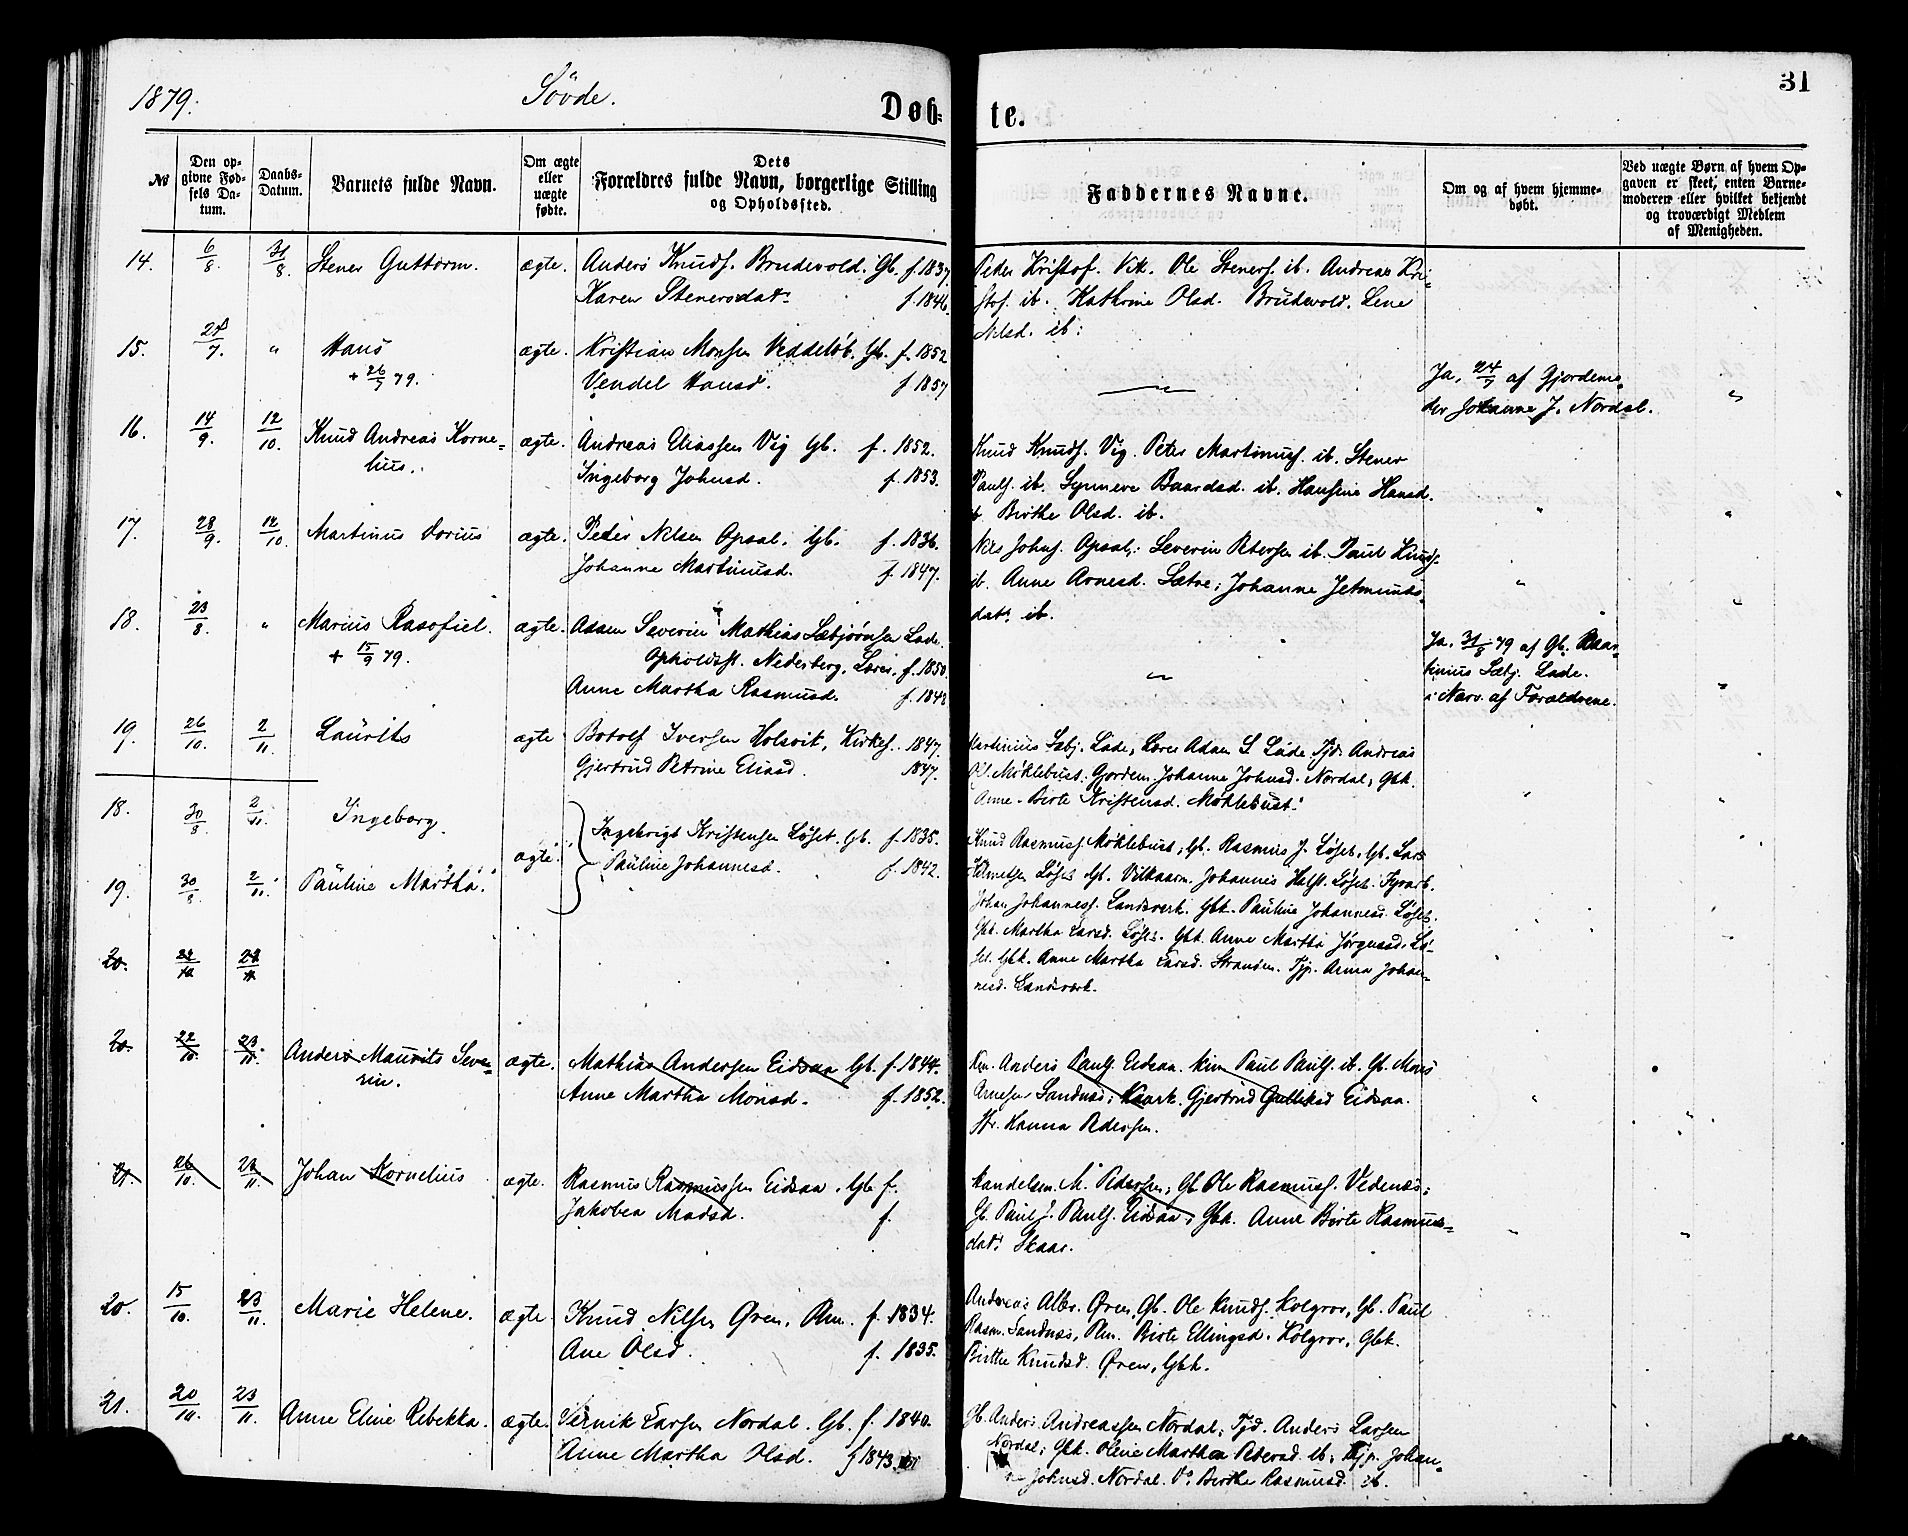 1879.
Søvde.
Døb-
te.
31
№
Den opgivne Fødsels Datum.
Daabs-Datum.
Barnets fulde Navn.
Om ægte eller uægte fødte.
Dets Forældres fulde Navn, borgerlige Stilling og Opholdssted.
Faddernes Navne.
Om og af hvem hjemmedøbt.
Ved uægte Børn af hvem Opgaven er skeet, enten Barnemoderen eller hvilket bekjendt og troværdigt Medlem af Menigheden.
14. 6/8. 31/8. Stener Guttorm. ægte. Anders Knuds. Brudevold. Gb. f. 1837.
Karen Stenersdat. f. 1846.
Peder Kristof. Vik. Ole Steners. ib. Andreas Kri-
stof. ib. Kathrine Olsd. Brudevold. Lene
Nelsd. ib:
15. 24/7. " Hans ægte. Kristian Monsen Veddeløb. Gb. f. 1852
+ 26/7 79. Vendel Hansd. f. 1857
Ja, 24/7 af Gjordemo-
der Johanne J. Nordal.
16. 14/9. 12/10. Knud Andreas Korne- ægte. Andreas Eliassen Vig Gb. f. 1852.
lius. Ingeborg Johnsd. f. 1853.
Knud Knuds. Vig. Peter Martinus. ib. Stener
Pauls. ib. Synneve Baardsd. ib. Hansine Hansd.
Birthe Olsd. ib.
17. 28/9. 12/10. Martinus Dorius ægte. Peder Nelsen Opsal. Gb. f. 1836.
Johanne Martinusd. f. 1847.
Nels Johns. Opsal; Severin Petersen ib. Paul Knuds.
ib. Anne Arnesd. Sætre; Johanne Jetmunds-
dat. ib.
18. 23/8. " Marius Rasofiel. ægte. Adam Severin Mathias Sæbjørnsen Lade.
+ 15/9 79. Opholdsst. Nedreberg, Lærer, f. 1850.
Anne Martha Rasmusd. f. 1848
Ja, 31/8 79 af Gb. Mar-
tinius Sæbj. Lade.
i Nærv. af Forældrene.
19. 26/10. 2/11. Laurits ægte Botolf Iversen Holsvik, Kirkes. 1847.
Gjertrud Petrine Eliasd. 1847.
Martinius Sæbj. Lade, Lærer Adam S. Lade. Tjd. Andreas
Ol. Møklebust. Gjordem. Johanne Johnsd. Nordal; Gbk.
Anne-Birte Kristensd. Møklebust.
18. 30/8. 2/11. Ingeborg. ægte. Ingebrigt Kristensen Løset. Gb. f. 1835.
19. 30/8. 2/11. Pauline Martha. Pauline Johannesd. f. 1842.
Knud Rasmuss. Møklebust; Gb. Rasmus J. Løset. Gb. Lars
Løset. Gb. Vilkaarm. Johannes Løset.
Johan Johanness. Landsverk. Gbk. Pauline Johannesd. Løset.
Gbk. Martha Larsd. Løset. Gbk. Anne Martha Jørgensd. Lø-
set. Gbk. Anne Martha Larsd. Stranden. Tjp. Anna Johan-
nesd. Landsverk.
20. 22/10 23/11
20. 22/10. 23/11. Anders Maurits Seve- ægte. Mathias Andersen Eidsaa Gb. f. 1844.
rin. Anne Martha Monsd. f. 1852.
Anders Pauls. Eidsaa. Paul Pauls. ib. Gb. Mons
Arnesen Sandnæs; Gjertrud Eidsaa.
Fr. Hanna Pedersen.
21. 26/10. 23/11. Johan Kornelius ægte. Rasmus Rasmussen Eidsaa. Gb f.
Jakobea Madsd. f.
Handelsm. M. Pedersen; Gb. Ole Rasmuss. Vedenæs;
Gb. Paul J. Pauls. Eidsaa; Gbk. Anne Birte Rasmus-
dat. Skaar.
20. 15/10. 23/11. Marie Helene. ægte. Knud Nilsen Øren, Plm. f. 1834.
Ane Olsd. f. 1835.
Andreas Albr. Øren, Gb. Ole Knuds. Kolgrov, Gb. Paul
Rasm. Sandnæs, Plm. Birte Ellingsd. Kolgrov, Gbk.
Birthe Knudsd. Øren, Gbk.
21. 20/10. 23/11. Anne Eline Rebekka. ægte. Larsen Nordal. Gb. f. 1840.
Anne Martha Olsd. f 1843.
Gb. Anders Andreassen Nordal, Tjd. Anders Larsen
Nordal; Gbk. Oline Marthea Pedersd. ib; Tjp. Johan-
ne Johnsd. Nordal. Do Birthe Rasmusd. ib.